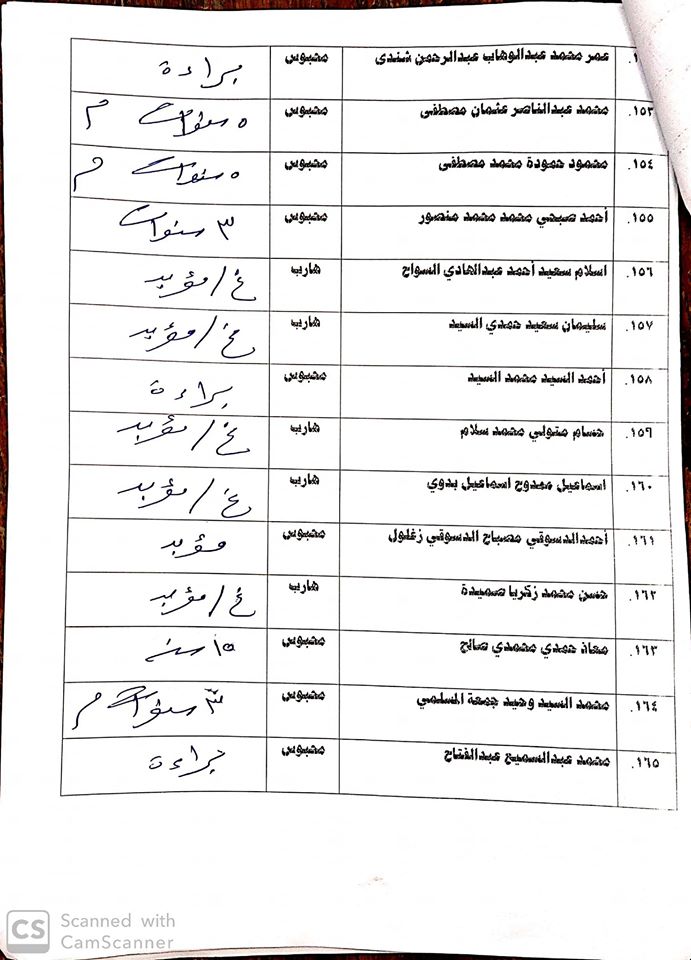 عمر محمد عبدالوهاب عبدالرحمن شندى محبوس براءة
١٥٣. محمد عبدالناصر عثمان مصطفى محبوس ٥ سنوات م
١٥٤. محمود حمودة محمد مصطفى محبوس ٥ سنوات م
١٥٥. أحمد صبحي محمد محمد منصور محبوس ٣ سنوات
١٥٦. اسلام سعيد أحمد عبدالهادي السواح هارب غ/مؤبد
١٥٧. سليمان سعيد حمدي السيد هارب غ/مؤبد
١٥٨. أحمد السيد محمد السيد محبوس براءة
١٥٩. حسام متولي محمد سلام هارب غ/مؤبد
١٦٠. اسماعيل ممدوح اسماعيل بدوي هارب غ/مؤبد
١٦١. أحمدالدسوقي مصباح الدسوقي زغلول محبوس مؤبد
١٦٢. حسن محمد زكريا صميدة هارب غ/مؤبد
١٦٣. معاذ حمدي محمدي صالح محبوس ١٥ سنه
١٦٤. محمد السيد وحيد جمعة المسلمي محبوس ٣ سنوات م
١٦٥. محمد عبدالسميع عبدالفتاح محبوس براءة
CS Scanned with
CamScanner